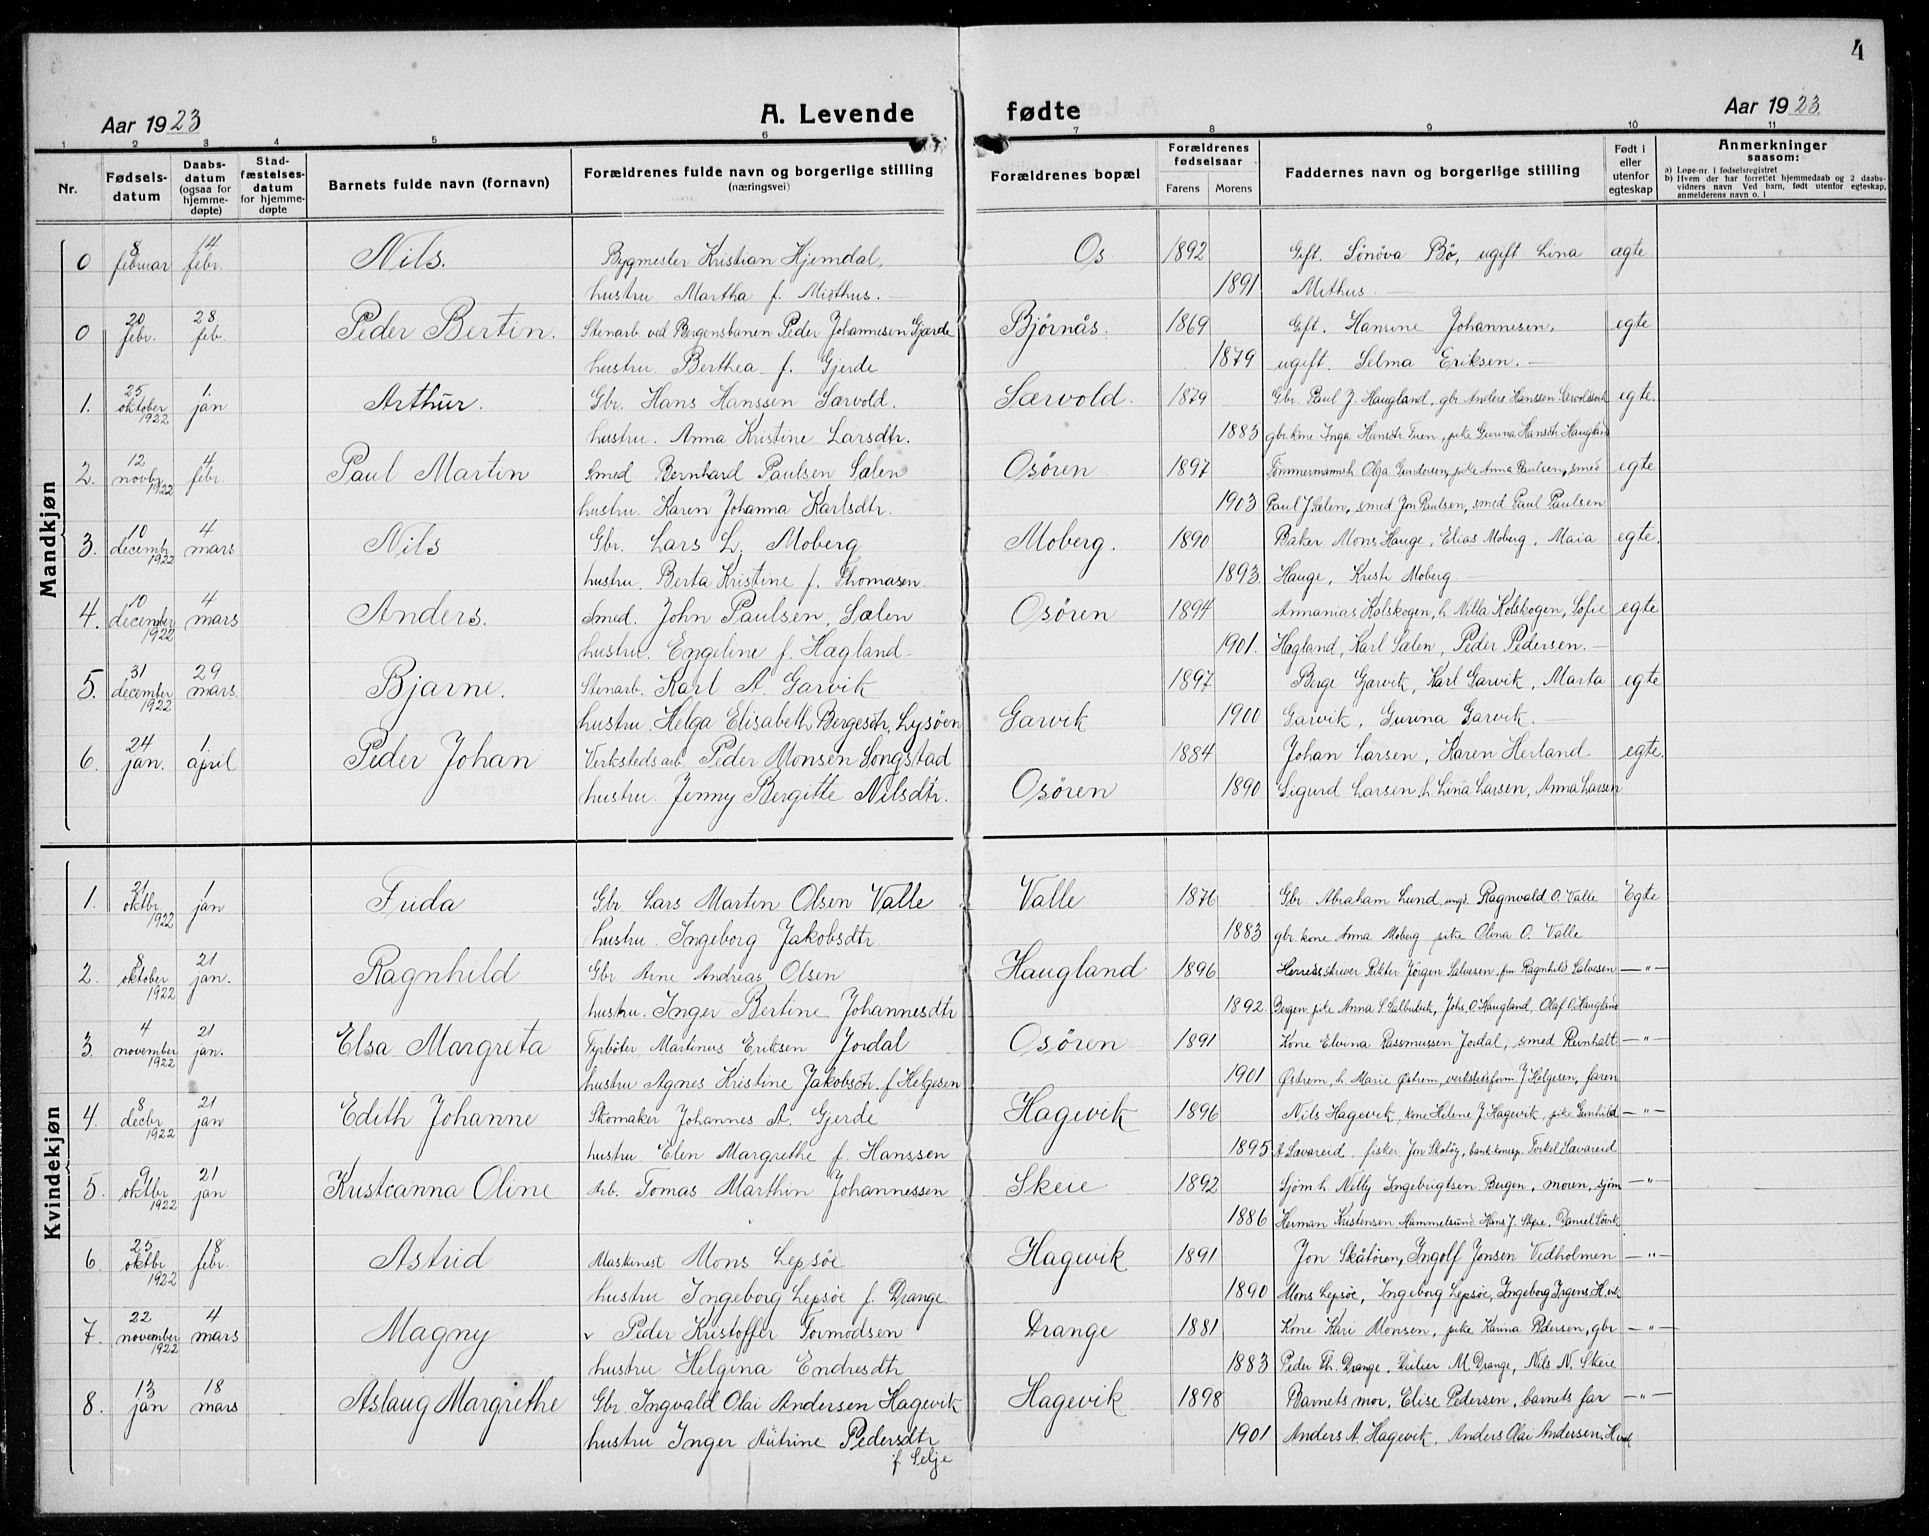 4
Aar 1923
A. Levende fødte
Aar 1923
1 2 3 4 5 6 7 8 9 10 11
Nr.
Fødsels-datum
Daabs-datum (ogsaa for hjemme-døpte)
Stad-fæstelses-datum for hjemme-døpte
Barnets fulde navn (fornavn)
Forældrenes fulde navn og borgerlige stilling (næringsvei)
Forældrenes bopæl
Forældrenes fødselsaar
Farens Morens
Faddernes navn og borgerlige stilling
Født i eller utenfor egteskap
Anmerkninger saasom:
a) Løpe-nr. i fødselsregistret
b) Hvem der har forrettet hjemmedaab og 2 daabs-vidners navn Ved barn, født utenfor egteskap, anmelderens navn o. l
Mandkjøn
0 8 februar 14 febr. Nils. Bygmester Kristian Hjemdal, Os 1892 Gift. Sønøva Bø, ugift Lina ægte
hustru Martha f. Midthus. 1891 Mithus.
0 20 febr. 28 feb. Peder Bertin. Stenarb ved Bergensbanen Peder Johannesen Gjerde Bjørnås. 1869 Gift. Hansine Johannesen, egte
hustru. Berthea f. Gjerde 1879 ugift. Selma Eriksen.
1. 25 oktober 1922 1. jan Arthur. Gbr. Hans Hanssen Særvold. Særvold. 1879 Gbr. Paul J. Haugland, gbr Anders Hanssen egte.
hustru. Anna Kristine Larsdtr. 1883 gbr kone Inga Hansdtr Tuen, pike Gurina Hansdtr Haugland
2. 12 novbr 1922 4 febr. Paul Martin Smed Bernhard Paulsen Sælen Osøren 1897 Tømmermannsh Olga Gundersen, pike Anna Paulsen, smed egte
hustru. Karen Johanna Karlsdtr. 1903 Paul J Sælen, smed Jon Paulsen, smed Paul Paulsen
3. 10 decembr 1922 4 mars Nils Gbr. Lars L. Moberg Moberg. 1890 Baker Mons Hauge, Elias Moberg, Maia egte.
hustru. Berta Kristine f. Thomasen. 1893 Hauge, Kristi Moberg
4. 10 december 1922 4 mars Anders. Smed. John Paulsen, Sælen Osøren 1894 Annanias Kolskogen, h Nilla Kolskogen, Sofie egte
hustru. Engeline f. Hagland 1901. Hagland, Karl Sælen, Peder Pedersen.
5. 31 december 1922 29 mars. Bjarne. Stenarb. Karl A. Garvik 1897 Berge Garvik, Karl Garvik, Marta egte
hustru. Helga Elisabeth Bergesdtr, Lysøen Garvik 1900 Garvik, Gurina Garvik.
6. 24 jan. 1 april Peder Johan Verkstedsarb. Peder Monsen Songstad 1884 Johan Larsen, Karen Herland egte.
hustru. Jenny Bergitte Nilsdtr. Osøren 1890 Sigurd Larsen, h Lina Larsen, Anna Larsen
Kvindekjøn
1. 21 oktbr. 1922 1 jan Frida Gbr. Lars Martin Olsen Valle Valle 1876 Gbr Abraham Lund, Ragnvald O. Valle Egte
hustru. Ingeborg Jakobsdtr 1883 gbr kone Anna Moberg pike Olina O. Valle
2. 8 oktober 1922 21 jan. Ragnhild Gbr Arne Andreas Olsen Haugland 1896 Herredsskriver Rikter Jørgen Salvesen, fru Ragnhild Salvesen —"—
hustru. Inger Bertine Johannesdtr 1892 Bergen, pike Anna S Johs. O Haugland, Olaf O. Haugland
3. 4 november 1922 21 jan. Elsa Margreta Fyrbøter Martinus Eriksen Jordal Osøren 1891 Kone Elvina Rassmussen Jordal, smed Reinhalt —"—
hustru Agnes Kristine Jakobsdtr. f Helgesen 1901 Østrem, h. Marie Østrem, J Helgesen, faren
4. 8 decbr 1922 21 jan Edith Johanne Skomaker Johannes A. Gjerde Hagevik 1896 Nils Hagevik, kone Helene J Hagevik, pike Gunhild —"—
hustru Elen Margrethe f. Hanssen 1895 A Savareid, fisker Jon Torkel Savareid
5. 9 oktbr 1922 21 jan Kristianna Oline Arb. Tomas Marthin Johannessen Skeie 1892 Sjøm h. Nelly Ingebrigtsen Bergen, moren, sjøm —"—
1886 Herman Kristensen Hammelsund, Hans J. Skeie, Daniel
6. 25 oktbr 1922 18 febr. Astrid Maskinist Mons Lepsøe Hagevik 1891 Jon Skåtøren, Ingolf Jonsen Vedholmen —"—
hustru Ingeborg Lepsøe f. Drange 1890 Mons Lepsøe, Ingeborg Lepsøe, Ingeborg Irgens
7. 22 november 1922 4 mars Magny Peder Kristoffer Tormodsen Drange 1881 Kone Kari Monsen, pike Karina Pedersen, gbr —"—
hustru Helgina Endresdtr 1883 Peder Th. Drange, M. Drange, Nils N. Skeie
8. 13 jan 18 mars Aslaug Margrethe Gbr. Ingvald Olai Andersen Hagevik Hagevik 1898 Barnets mor, Elise Pedersen, barnets far —"—
hustru Inger Autrine Pedersdtr 1901 Anders A. Hagevik, Anders Olai Andersen,
f. Selje